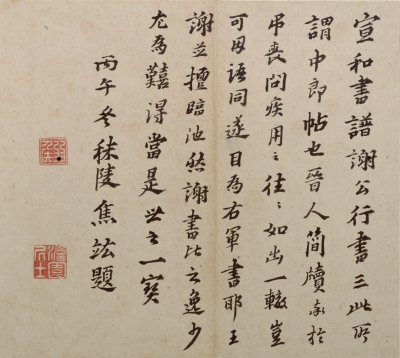 宣和書譜謝公行書三此所
謂中郎帖也晉人簡牘多於
弔喪問疾用之往〻如出一轍豈
可因語同遂目為右軍書耶王
謝並擅臨池然謝書比之逸少
尤為難得當是世之一寶
丙午冬秣陵焦竑題